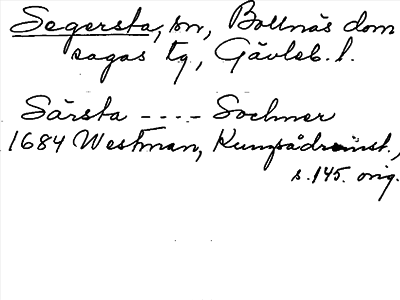 Segersta, sn, Bollnäs dom
sagas tg., Gävleb. l.
Särsta ---- Sochner
1684 Westman, Kungsådreinst.,
s. 145. orig.